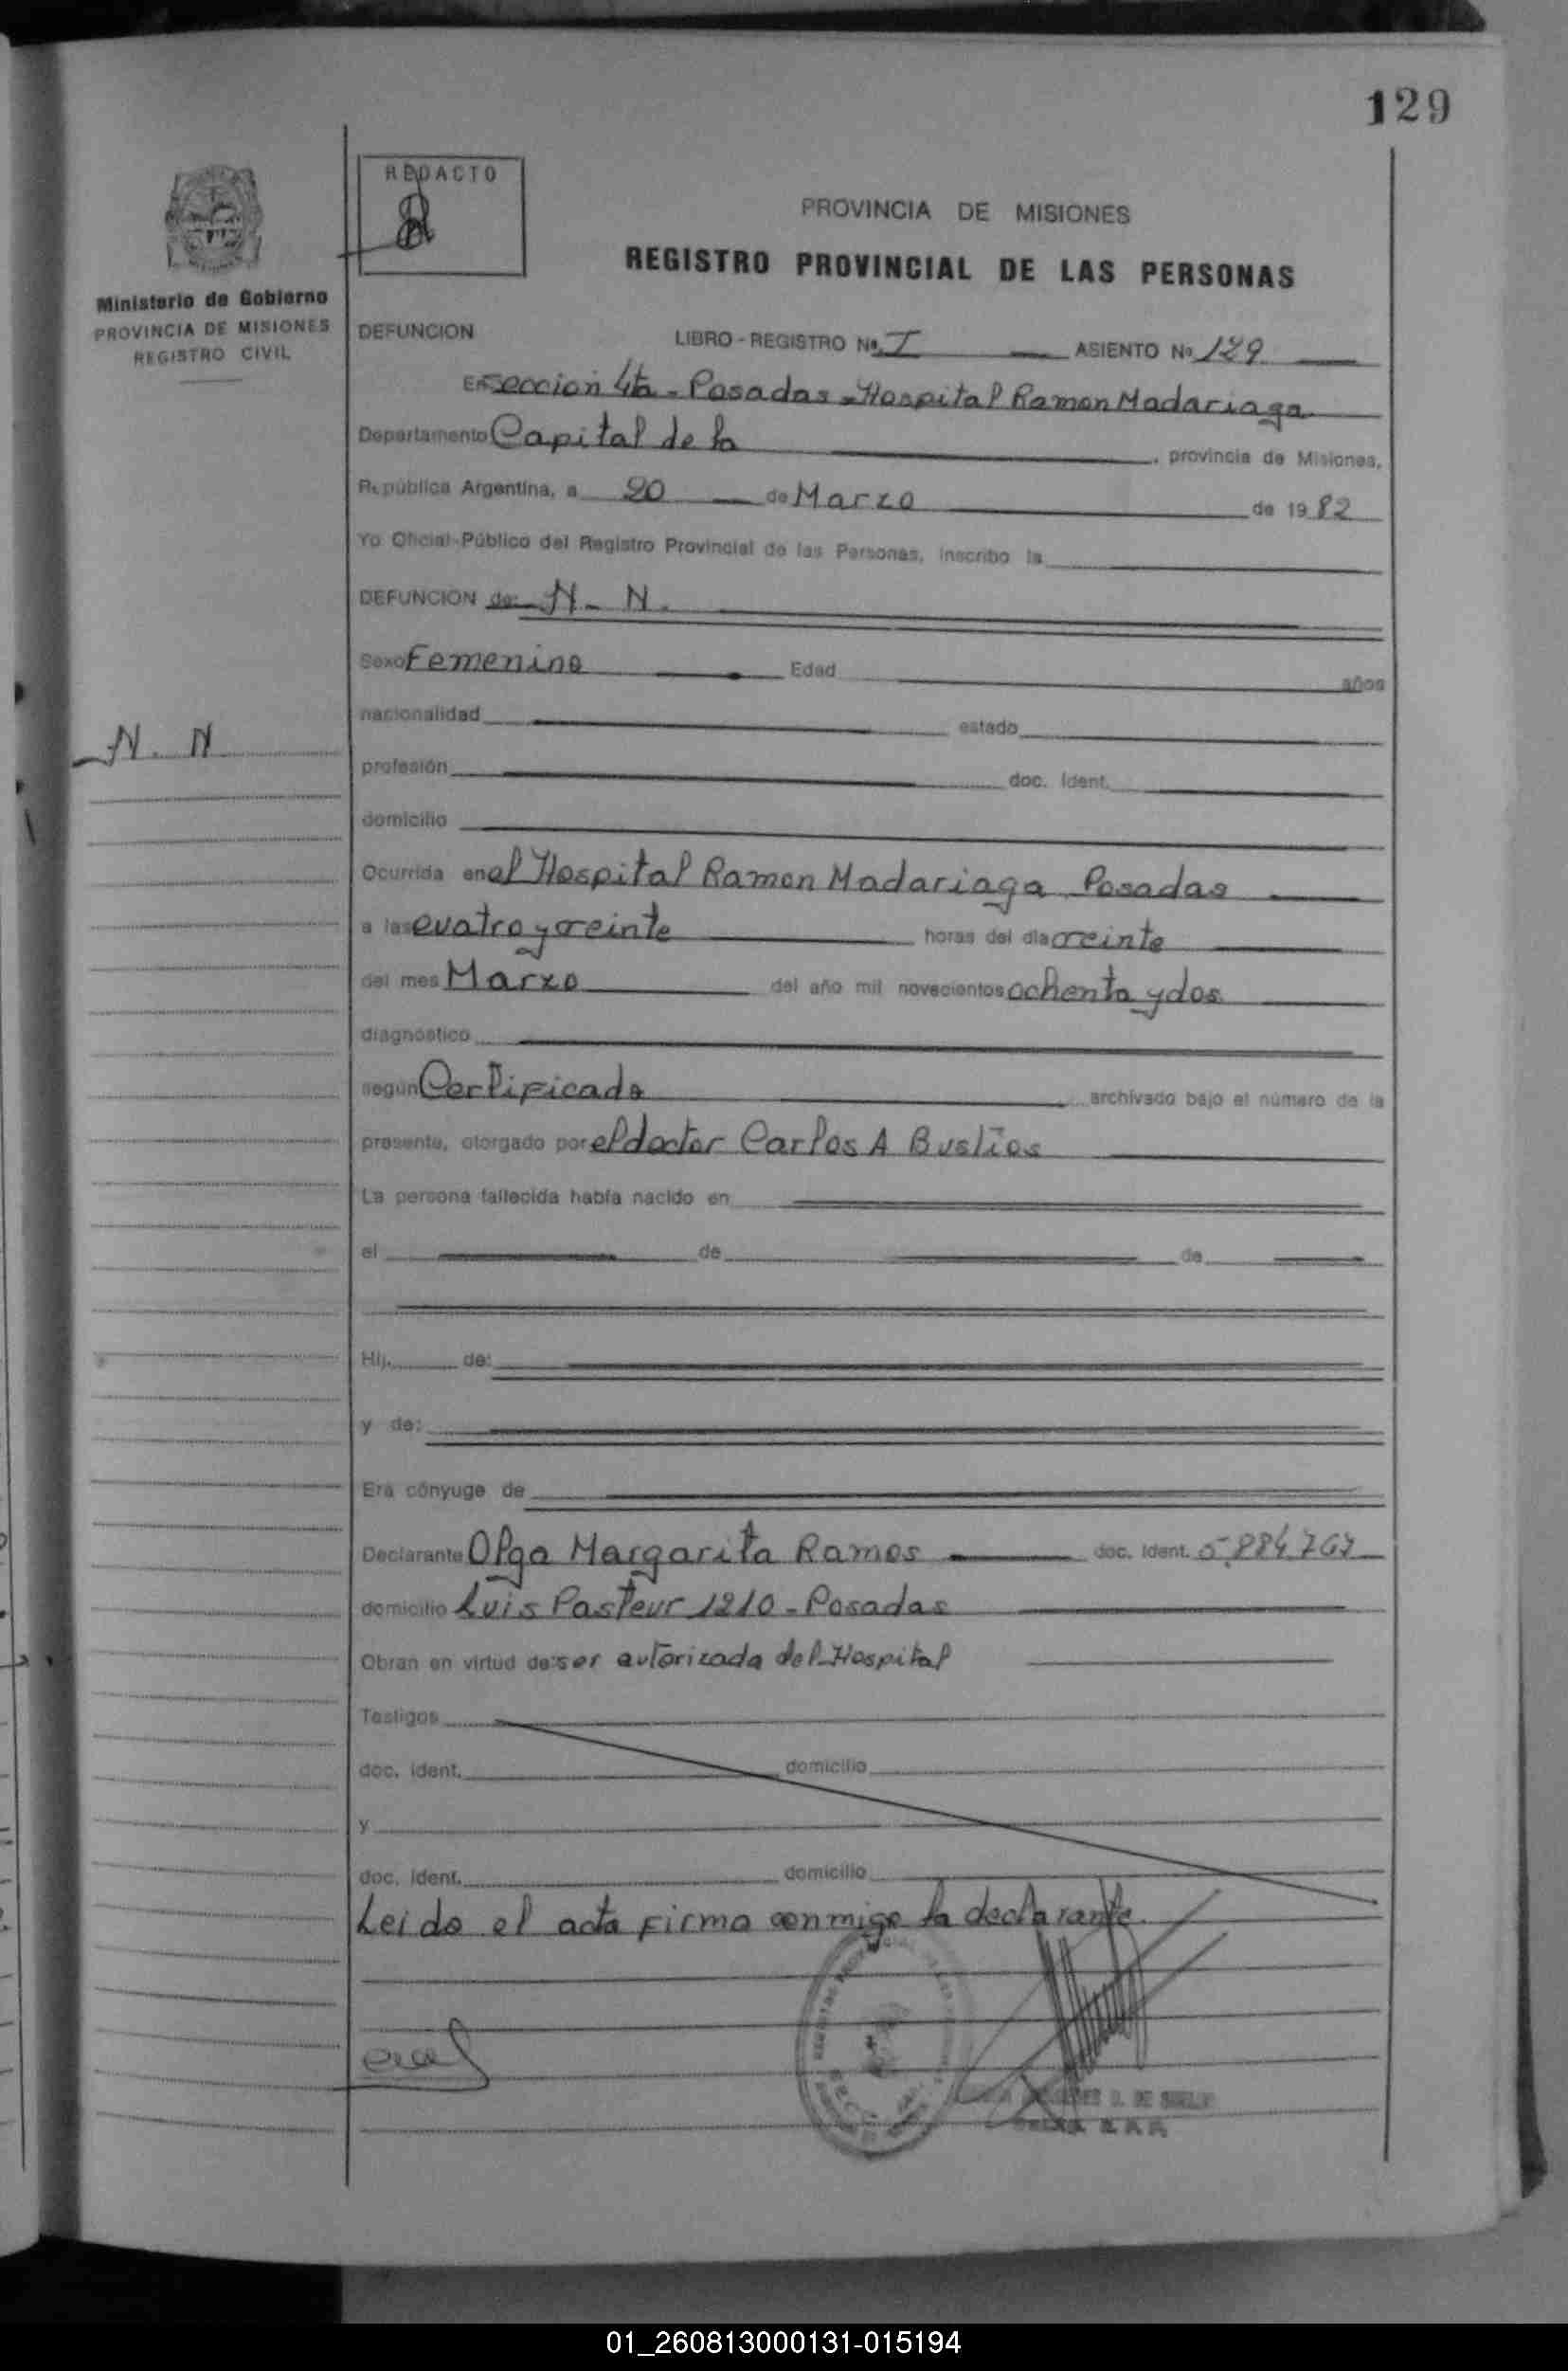 129
REDACTO
PROVINCIA DE MISIONES
REGISTRO PROVINCIAL DE LAS PERSONAS
Ministerio de Gobierno
PROVINCIA DE MISIONES
REGISTRO CIVIL
DEFUNCION LIBRO - REGISTRO Nº I ASIENTO Nº 129
En Seccion 4ta - Posadas - Hospital Ramon Madariaga
Departamento Capital de la , provincia de Misiones,
República Argentina, a 20 de Marzo de 1982
Yo Oficial Público del Registro Provincial de las Personas, inscribo la
DEFUNCION de: N. N.
Sexo Femenino Edad años
nacionalidad estado
N. N
profesión doc. ident.
domicilio
Ocurrida en el Hospital Ramon Madariaga Posadas
a las cuatro y veinte horas del día veinte
del mes Marzo del año mil novecientos ochenta y dos
diagnóstico
según Certificado archivado bajo el número de la
presente, otorgado por el doctor Carlos A Bustios
La persona fallecida había nacido en
el de de
Hij de:
y de:
Era cónyuge de
Declarante Olga Margarita Ramos doc. ident. 5.884.767
domicilio Luis Pasteur 1210 - Posadas
Obran en virtud de: ser autorizada del Hospital
Testigos
doc. ident. domicilio
y
doc. ident. domicilio
Leido el acta firma conmigo la declarante.
01_260813000131-015194